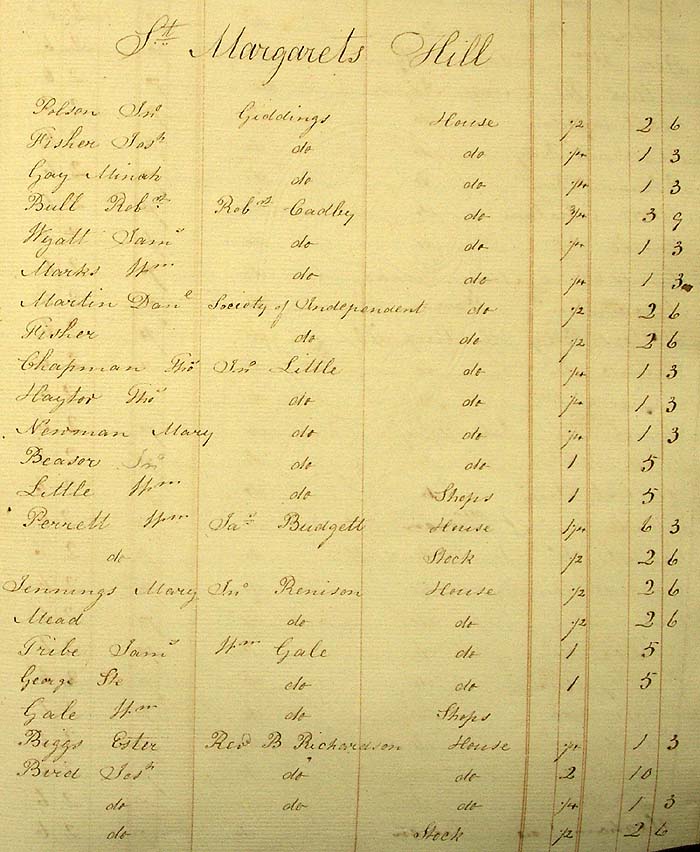 St Margarets Hill
Polson Jno Giddings House 1/2 2 6
Fisher Josh do do 1/4 1 3
Gay Minah do do 1/4 1 3
Bull Robt Robt Cadby do 3/4 3 9
Wyatt Saml do do 1/4 1 3
Marks Wm do do 1/4 1 3
Martin Danl Society of Independent do 1/2 2 6
Fisher do do 1/2 2 6
Chapman Thos Jno Little do 1/4 1 3
Haytor Thos do do 1/4 1 3
Newman Mary do do 1/4 1 3
Beasor Jno do do 1 5
Little Wm do Shops 1 5
Perrett Wm Jas Budgett House 1 1/4 6 3
do Stock 1/2 2 6
Jennings Mary Jno Renison House 1/2 2 6
Mead do do 1/2 2 6
Tribe Saml Wm Gale do 1 5
George do do 1 5
Gale Wm do Shops
Biggs Ester Revd B Richardson House 1/4 1 3
Bird Josh do do 2 10
do do do 1/4 1 3
do Stock 1/2 2 6